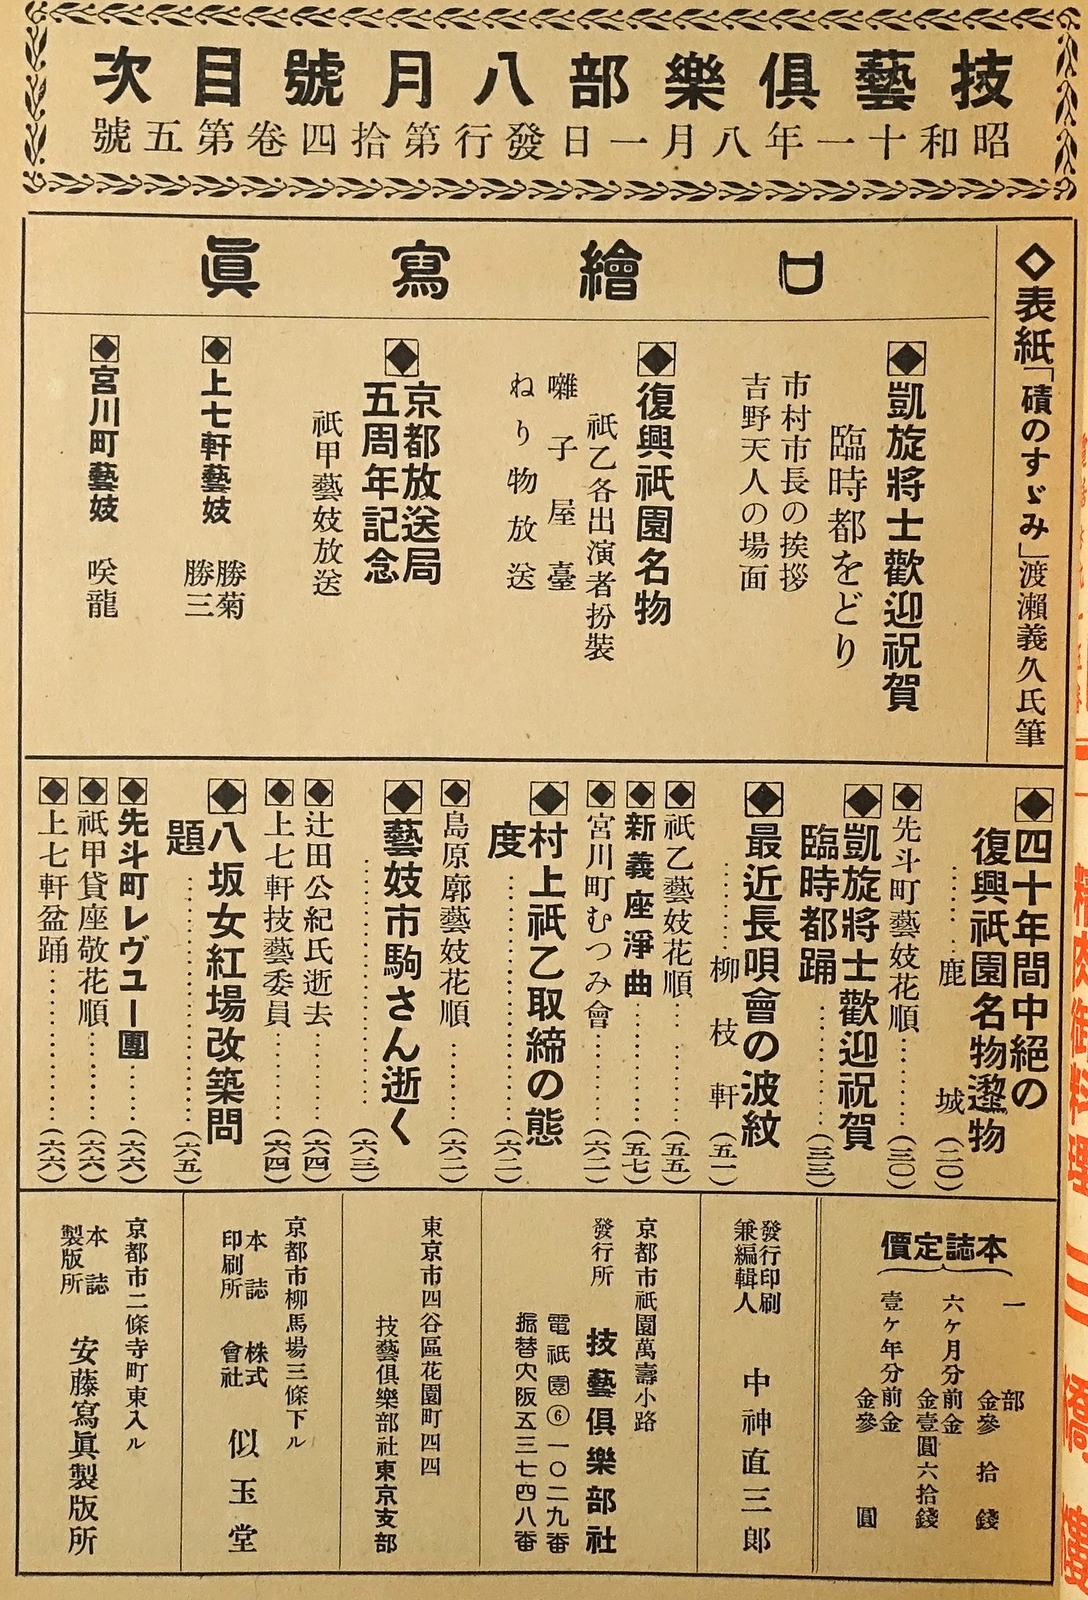 技藝倶樂部八月號目次
昭和十一年八月一日發行第拾四卷第五號
◇表紙「磧のすゞみ」渡瀨義久氏筆
口繪寫眞
◆凱旋將士歡迎祝賀
臨時都をどり
市村市長の挨拶
吉野天人の場面
◆復興祇園名物
祇乙各出演者扮裝
囃子屋臺
ねり物放送
◆京都放送局
五周年記念
祇甲藝妓放送
◆上七軒藝妓 勝菊
勝三
◆宮川町藝妓 咲龍
◆四十年間中絕の
復興祇園名物邌物
………鹿城(二〇)
◆先斗町藝妓花順………(三〇)
◆凱旋將士歡迎祝賀
臨時都踊………(三三)
◆最近長唄會の波紋
………柳枝軒(五一)
◆祇乙藝妓花順………(五五)
◆新義座淨曲………(五七)
◆宮川町むつみ會………(六一)
◆村上祇乙取締の態
度………(六一)
◆島原廓藝妓花順………(六二)
◆藝妓市駒さん逝く
………(六三)
◆辻田公紀氏逝去………(六四)
◆上七軒技藝委員………(六四)
◆八坂女紅場改築問
題………(六五)
◆先斗町レヴユー團………(六六)
◆祇甲貸座敬花順………(六六)
◆上七軒盆踊………(六六)
本誌定價
一部
金參拾錢
六ヶ月分前金
金壹圓六拾錢
壹ヶ年分前金
金參圓
發行印刷
兼編輯人 中神直三郎
京都市祇園萬壽小路
發行所 技藝倶樂部社
電祇園⑥一〇二九番
振替大阪五三七四八番
東京市四谷區花園町四四
技藝倶樂部社東京支部
京都市柳馬場三條下ル
本誌印刷所 株式會社 似玉堂
京都市二條寺町東入ル
本誌製版所 安藤寫眞製版所